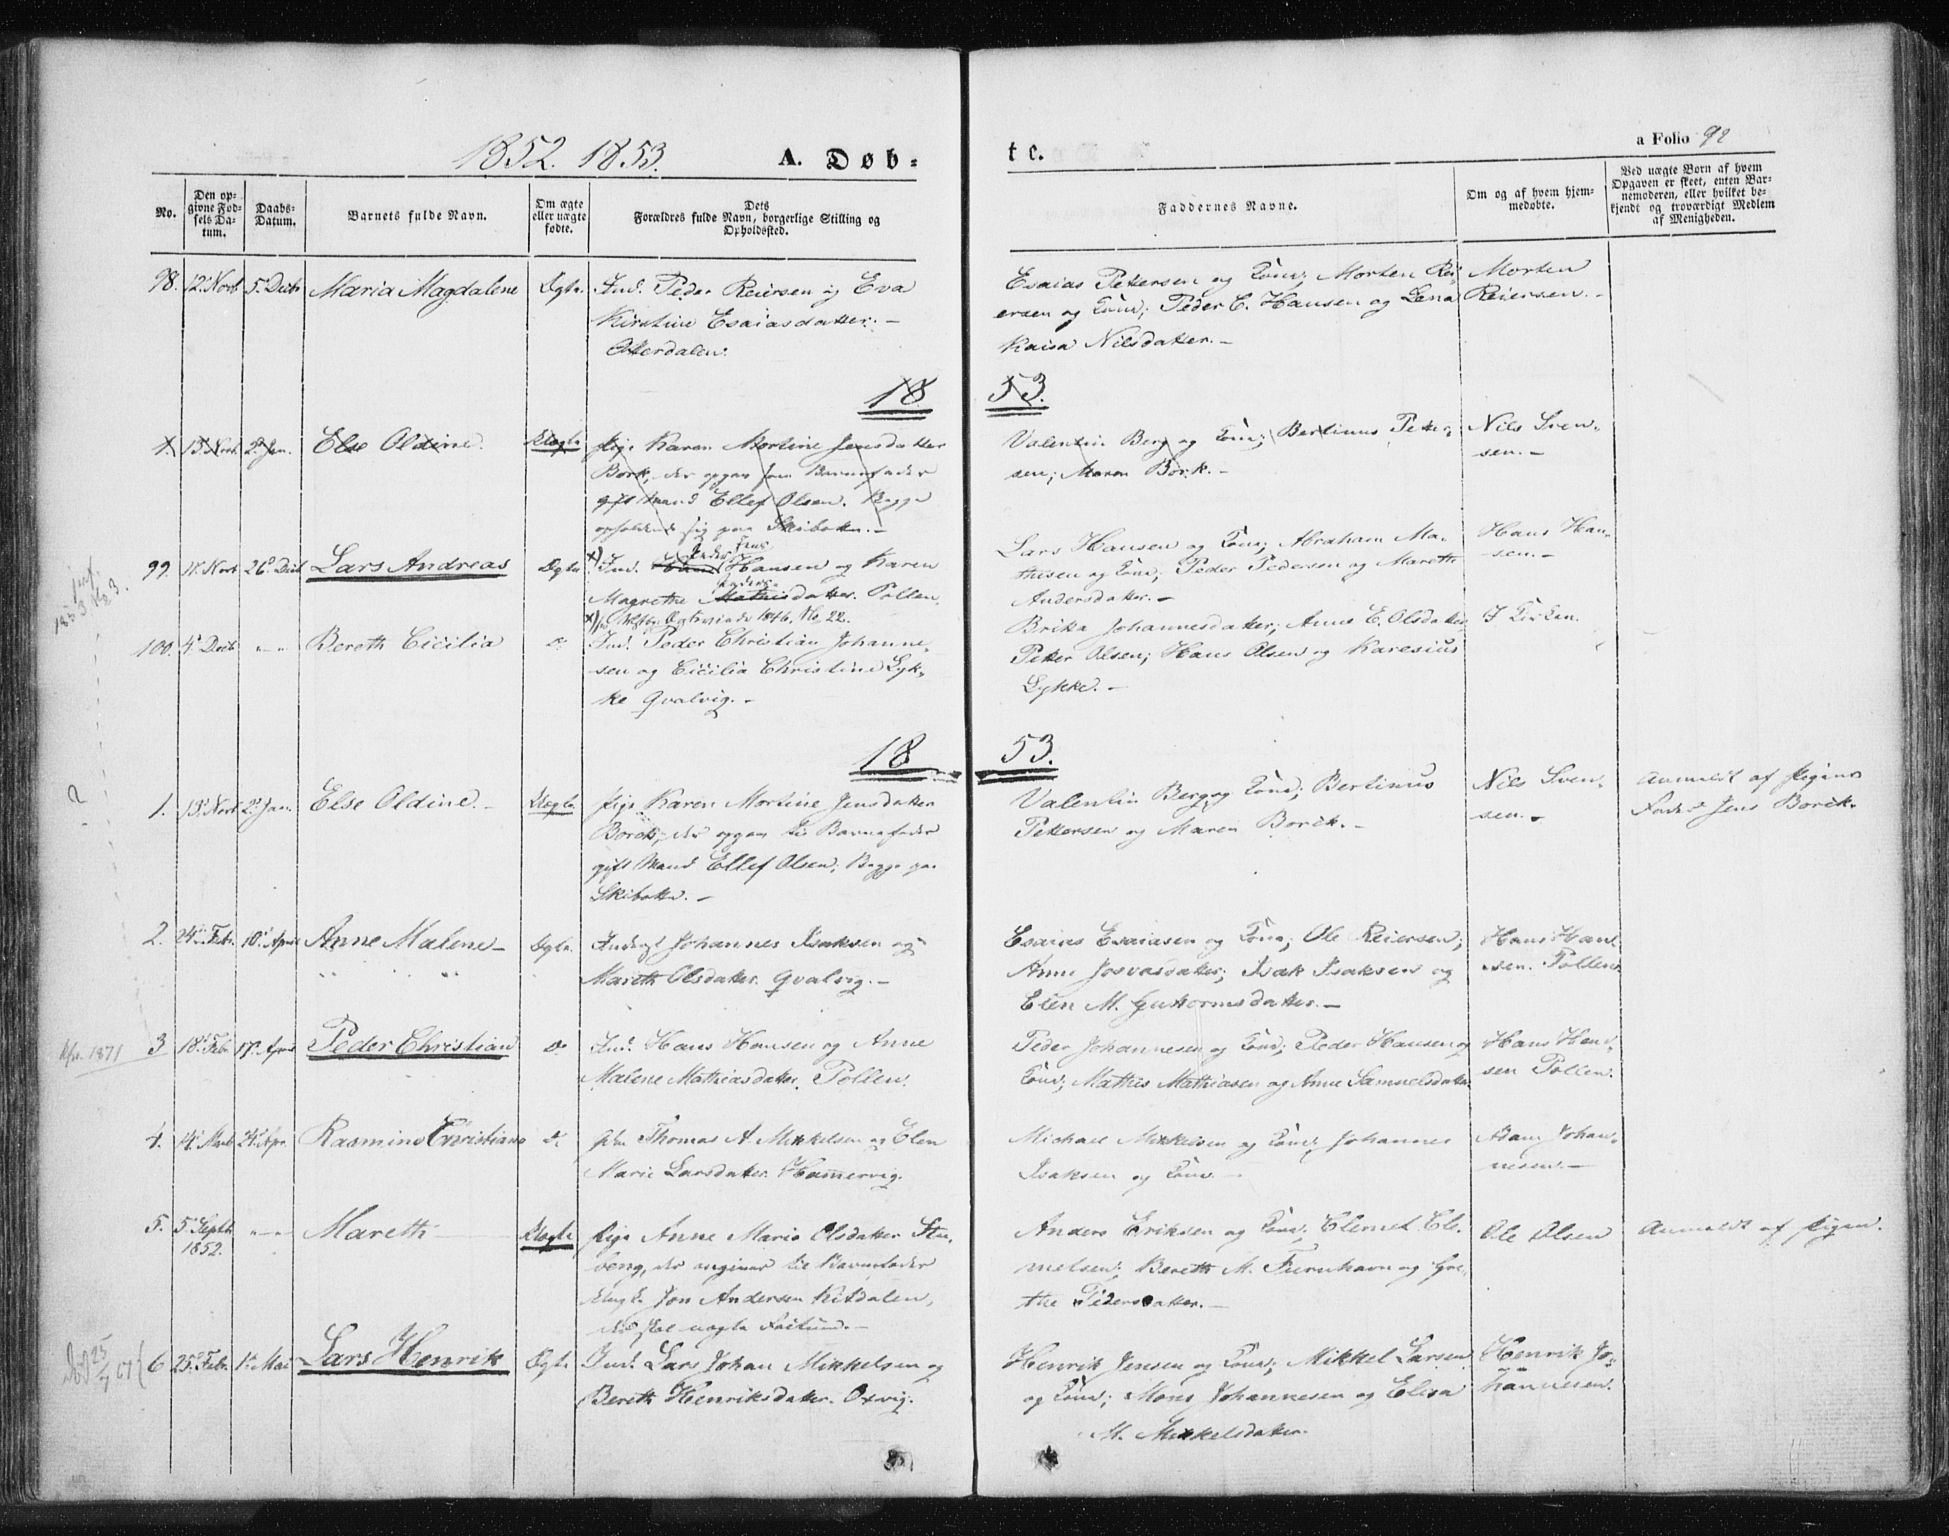 1852. 1853.
A. Døb-
te.
a Folio 92
No.
Den op-
givne Fød-
sels Da-
tum.
Daabs-
Datum.
Barnets fulde Navn.
Om ægte
eller uægte
fødte.
Dets
Forældres fulde Navn, borgerlige Stilling og
Opholdssted.
Faddernes Navne.
Om og af hvem hjem-
medøbte.
Ved uægte Børn af hvem
Opgaven er skeet, enten Bar-
nemoderen, eller hvilket be-
kjendt og troværdigt Medlem
af Menigheden.
98. 12. Novb 5. Decb Maria Magdalene Ægte. Ind. Peder Reiersen og Eva
Kirstine Esaiasdatter.-
Otterdalen.
Esaias Pettersen og Kone; Morten Rei-
ersen og Kone; Peder C. Hansen og Lena
Kaisa Nilsdatter.-
Morten
Reiersen.-
18 53.
1. 13. Novb. 2. Jan. Else Oldine. Uægte Pige Karen Mortine Jensdatter
Bork, der opgav som Barnefader
gift Mand Ellef Olsen. Begge
opholdende sig paa Skibotten.-
Valentin Berg og Kone; Bertinus Petter-
sen; Maren Bork.-
Nils Sven-
sen.-
99. Novb 26. Decb Lars Andreas Ægte x) Ind. Hans Hansen og Karen
Peder Jens
Magrethe Mathisdatter. Pollen.
Anders
1846. No. 22.
Lars Hansen og Kone; Abraham Ma-
thisen og Kone; Peder Pedersen og Mareth
Andersdatter.-
Hans Han-
sen.-
100. 4. Decb " " Bereth Cicilia d. Ind. Peder Christian Johanne-
sen og Cicilia Christine Lyk-
ke Qvalvig.-
Brita Johannesdatter; Anne E. Olsdatter
Petter Olsen; Hans Olsen og Karesius
Lykke.-
I Kirken.
18 53.
1. 13. Novb 2. Jan. Else Oldine.- Uægte Pige Karen Mortine Jensdatter
Borch, der opgav til Barnefader
gift Mand Ellef Olsen; Begge paa
Skibotten.-
Valentin Berg og Kone; Bertinus
Pettersen og Maren Borch.-
Nils Sven-
sen.-
Anmeldt af Pigens
Fader Jens Borch.
2. 24. Febr. 10. April Anne Malene- Ægte. Inderst Johannes Isaksen og
Mareth Olsdatter. Qvalvig.-
Esaias Esaiasen og Kone; Ole Reiersen;
Anne Josvasdatter; Isak Isaksen og
Elen M. Guttormsdatter.-
Hans Han-
sen. Pollen.
Kfr. 1871 3 18. Febr. 17. April Peder Christian d. Ind. Hans Hansen og Anne
Malene Mathiasdatter. Pollen.
Peder Johannesen og Kone; Peder Hansen og
Kone; Mathis Mathiasen og Anne Samuelsdatter
Hans Han-
sen Pollen.
4. 14. Marts 24. Apr. Rasmine Christiane d. Thomas A Mikkelsen og Elen
Marie Larsdatter. Hamervig.
Michael Mikkelsen og Kone; Johannes
Isaksen og Kone.-
Adam Johan-
nesen.-
5. 5. Septb " " Mareth Uægte Pige Anne Marie Olsdatter Stu-
1852.
beng, der angiver til Barnefader
Ungk. Jon Andersen Kitdalen,
Anders Eriksen og Kone; Clemet Cle-
metsen; Bereth M. Furuhavn og Gre-
the Pedersdatter.-
Ole Olsen
Anmeldt af Pigen.
6 25. Febr. 1. Mai Lars Henrik Ægte Ind. Lars Johan Mikkelsen og
Bereth Henriksdatter. Oxvig.
Henrik Jensen og Kone; Mikkel Larsen
og Kone; Mons Johannesen og Elisa
M. Mikkelsdatter.
Henrik Jo-
hannesen.